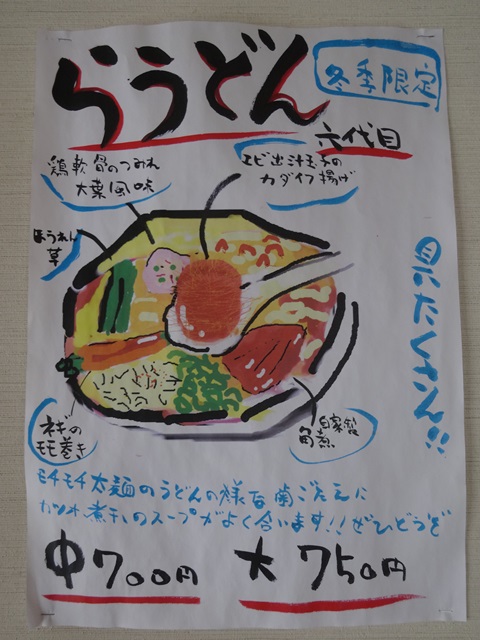 らうどん
冬季限定
六代目
鶏軟骨のつみれ
大葉風味
エビ出汁玉子の
カダイフ揚げ
ほうれん
草
具だくさん!!
ネギの
モモ巻き
自家製
角煮
モチモチ太麺のうどんの様な歯ごたえに
カツオ煮干しのスープがよく合います!!ぜひどうぞ
中700円
大750円